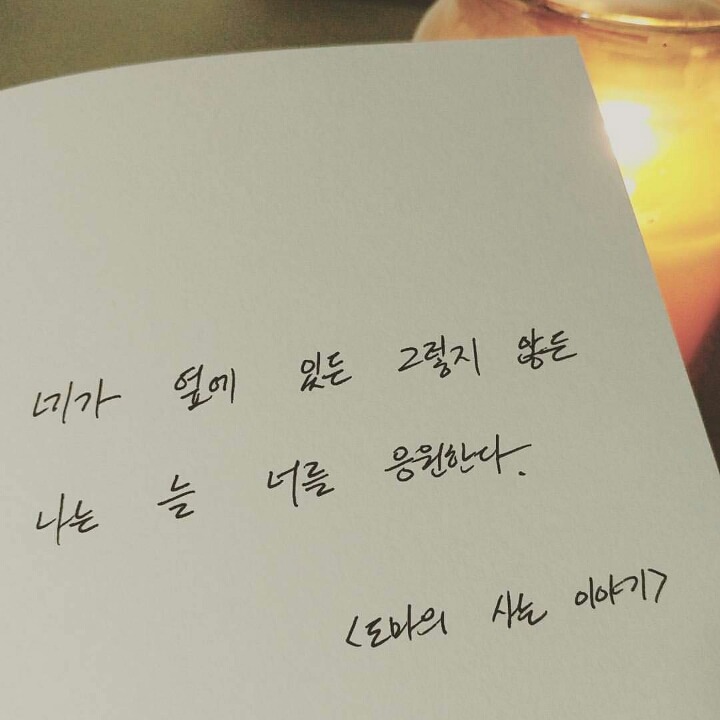 네가 옆에 있든 그렇지 않든
나는 늘 너를 응원한다.
<도마의 사는 이야기>